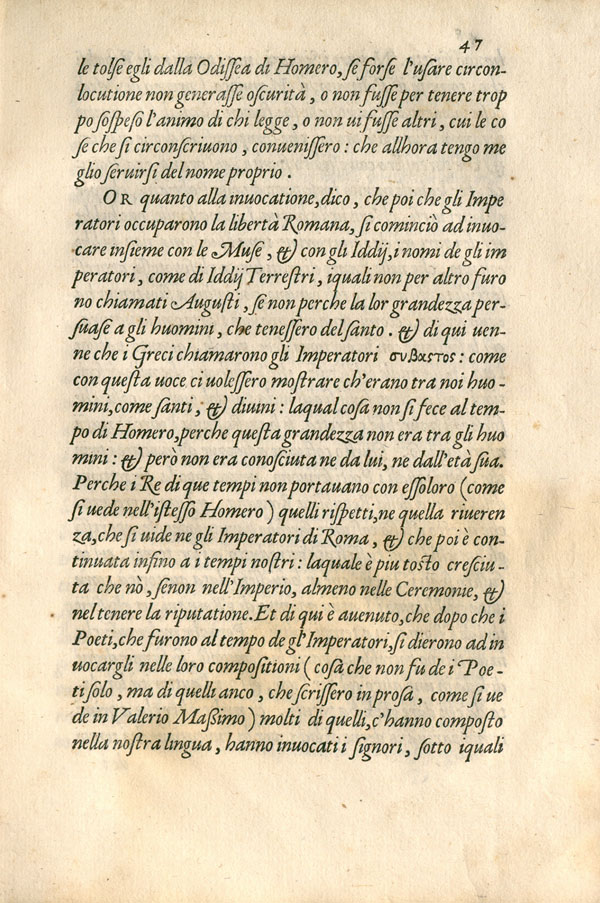 47
le tolse egli dalla Odissea di Homero, se forse l'usare circon-
locutione non generasse oscurità, o non fusse per tenere trop
po sospeso l'animo di chi legge, o non ui fusse altri, cui le co
se che si circonscriuono, conuenissero: che allhora tengo me
glio seruirsi del nome proprio.
OR quanto alla inuocatione, dico, che poi che gli Impe
ratori occuparono la libertà Romana, si cominciò ad inuo-
care insieme con le Muse, & con gli Iddij, i nomi de gli im
peratori, come di Iddij Terrestri, iquali non per altro furo
no chiamati Augusti, se non perche la lor grandezza per-
suase a gli huomini, che tenessero del santo. & di qui uen-
ne che i Greci chiamarono gli Imperatori συβαστος: come
con questa uoce ci uolessero mostrare ch'erano tra noi huo-
mini, come santi, & diuini: laqual cosa non si fece al tem-
po di Homero, perche questa grandezza non era tra gli huo
mini: & però non era conosciuta ne da lui, ne dall'età sua.
Perche i Re di que tempi non portauano con essoloro (come
si uede nell'istesso Homero) quelli rispetti, ne quella riueren
za, che si uide ne gli Imperatori di Roma, & che poi è con-
tinuata infino a i tempi nostri: laquale è piu tosto cresciu-
ta che nò, senon nell'Imperio, almeno nelle Ceremonie, &
nel tenere la riputatione. Et di qui è auenuto, che dopo che i
Poeti, che furono al tempo de gl'Imperatori, si dierono ad in
uocargli nelle loro compositioni (cosa che non fu de i Poe-
ti solo, ma di quelli anco, che scrissero in prosa, come si ue
de in Valerio Massimo) molti di quelli, c'hanno composto
nella nostra lingua, hanno inuocati i signori, sotto iquali